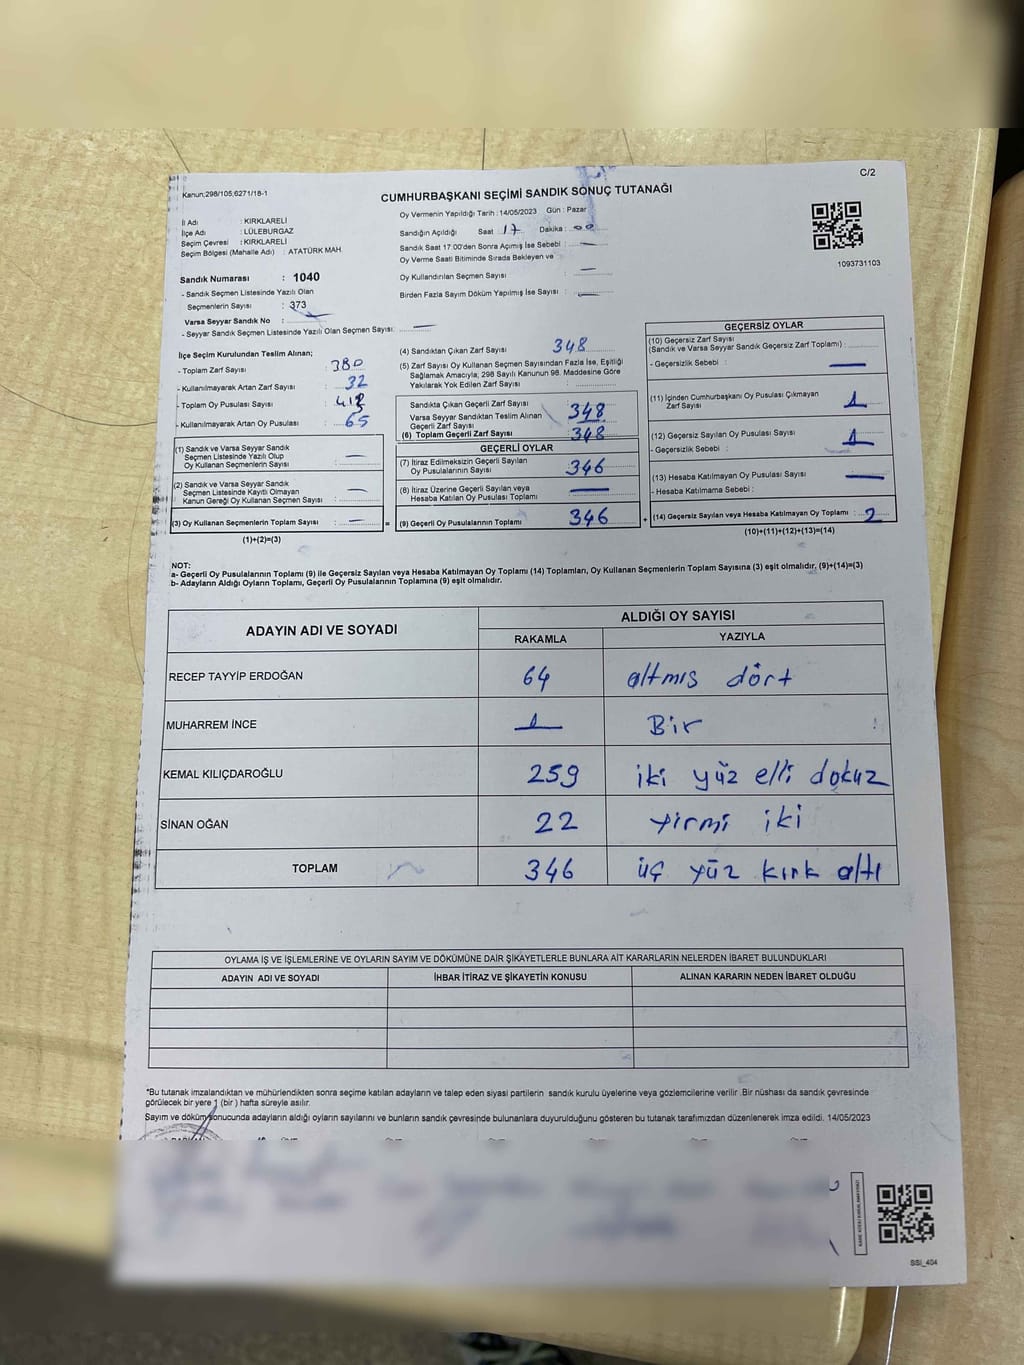 C/2
Kanun;298/105,6271/18-1
CUMHURBAŞKANI SEÇİMİ SANDIK SONUÇ TUTANAĞI
İl Adı : KIRKLARELİ
İlçe Adı : LÜLEBURGAZ
Seçim Çevresi : KIRKLARELİ
Seçim Bölgesi (Mahalle Adı) : ATATÜRK MAH.
Sandık Numarası : 1040
- Sandık Seçmen Listesinde Yazılı Olan
Seçmenlerin Sayısı : 373
Varsa Seyyar Sandık No :
- Seyyar Sandık Seçmen Listesinde Yazılı Olan Seçmen Sayısı: —
Oy Vermenin Yapıldığı Tarih : 14/05/2023 Gün : Pazar
Sandığın Açıldığı Saat : 17 Dakika : 00
Sandık Saat 17:00'den Sonra Açımış İse Sebebi : —
Oy Verme Saati Bitiminde Sırada Bekleyen ve
Oy Kullandırılan Seçmen Sayısı : —
Birden Fazla Sayım Döküm Yapılmış İse Sayısı : —
1093731103
İlçe Seçim Kurulundan Teslim Alınan;
- Toplam Zarf Sayısı : 380
- Kullanılmayarak Artan Zarf Sayısı : 32
- Toplam Oy Pusulası Sayısı :
- Kullanılmayarak Artan Oy Pusulası : 65
(1) Sandık ve Varsa Seyyar Sandık
Seçmen Listesinde Yazılı Olup
Oy Kullanan Seçmenlerin Sayısı : —
(2) Sandık ve Varsa Seyyar Sandık
Seçmen Listesinde Kayıtlı Olmayan
Kanun Gereği Oy Kullanan Seçmen Sayısı : —
(3) Oy Kullanan Seçmenlerin Toplam Sayısı : — =
(1)+(2)=(3)
(4) Sandıktan Çıkan Zarf Sayısı : 348
(5) Zarf Sayısı Oy Kullanan Seçmen Sayısından Fazla İse, Eşitliği
Sağlamak Amacıyla; 298 Sayılı Kanunun 98. Maddesine Göre
Yakılarak Yok Edilen Zarf Sayısı :
Sandıkta Çıkan Geçerli Zarf Sayısı : 348
Varsa Seyyar Sandıktan Teslim Alınan
Geçerli Zarf Sayısı :
(6) Toplam Geçerli Zarf Sayısı : 348
GEÇERLİ OYLAR
(7) İtiraz Edilmeksizin Geçerli Sayılan
Oy Pusulalarının Sayısı : 346
(8) İtiraz Üzerine Geçerli Sayılan veya
Hesaba Katılan Oy Pusulası Toplamı : —
(9) Geçerli Oy Pusulalarının Toplamı : 346 +
GEÇERSİZ OYLAR
(10) Geçersiz Zarf Sayısı
(Sandık ve Varsa Seyyar Sandık Geçersiz Zarf Toplamı) :
- Geçersizlik Sebebi : —
(11) İçinden Cumhurbaşkanı Oy Pusulası Çıkmayan
Zarf Sayısı : 1
(12) Geçersiz Sayılan Oy Pusulası Sayısı : 1
- Geçersizlik Sebebi :
(13) Hesaba Katılmayan Oy Pusulası Sayısı : —
- Hesaba Katılmama Sebebi :
(14) Geçersiz Sayılan veya Hesaba Katılmayan Oy Toplamı : 2
(10)+(11)+(12)+(13)=(14)
NOT:
a- Geçerli Oy Pusulalarının Toplamı (9) ile Geçersiz Sayılan veya Hesaba Katılmayan Oy Toplamı (14) Toplamları, Oy Kullanan Seçmenlerin Toplam Sayısına (3) eşit olmalıdır. (9)+(14)=(3)
b- Adayların Aldığı Oyların Toplamı, Geçerli Oy Pusulalarının Toplamına (9) eşit olmalıdır.
ADAYIN ADI VE SOYADI ALDIĞI OY SAYISI
RAKAMLA YAZIYLA
RECEP TAYYİP ERDOĞAN 64 altmış dört
MUHARREM İNCE 1 Bir
KEMAL KILIÇDAROĞLU 259 iki yüz elli dokuz
SİNAN OĞAN 22 yirmi iki
TOPLAM 346 üç yüz kırk altı
OYLAMA İŞ VE İŞLEMLERİNE VE OYLARIN SAYIM VE DÖKÜMÜNE DAİR ŞİKAYETLERLE BUNLARA AİT KARARLARIN NELERDEN İBARET BULUNDUKLARI
ADAYIN ADI VE SOYADI İHBAR İTİRAZ VE ŞİKAYETİN KONUSU ALINAN KARARIN NEDEN İBARET OLDUĞU
*Bu tutanak imzalandıktan ve mühürlendikten sonra seçime katılan adayların ve talep eden siyasi partilerin sandık kurulu üyelerine veya gözlemcilerine verilir .Bir nüshası da sandık çevresinde
görülecek bir yere 1 (bir ) hafta süreyle asılır.
Sayım ve döküm sonucunda adayların aldığı oyların sayılarını ve bunların sandık çevresinde bulunanlara duyurulduğunu gösteren bu tutanak tarafımızdan düzenlenerek imza edildi. 14/05/2023
SSİ_404